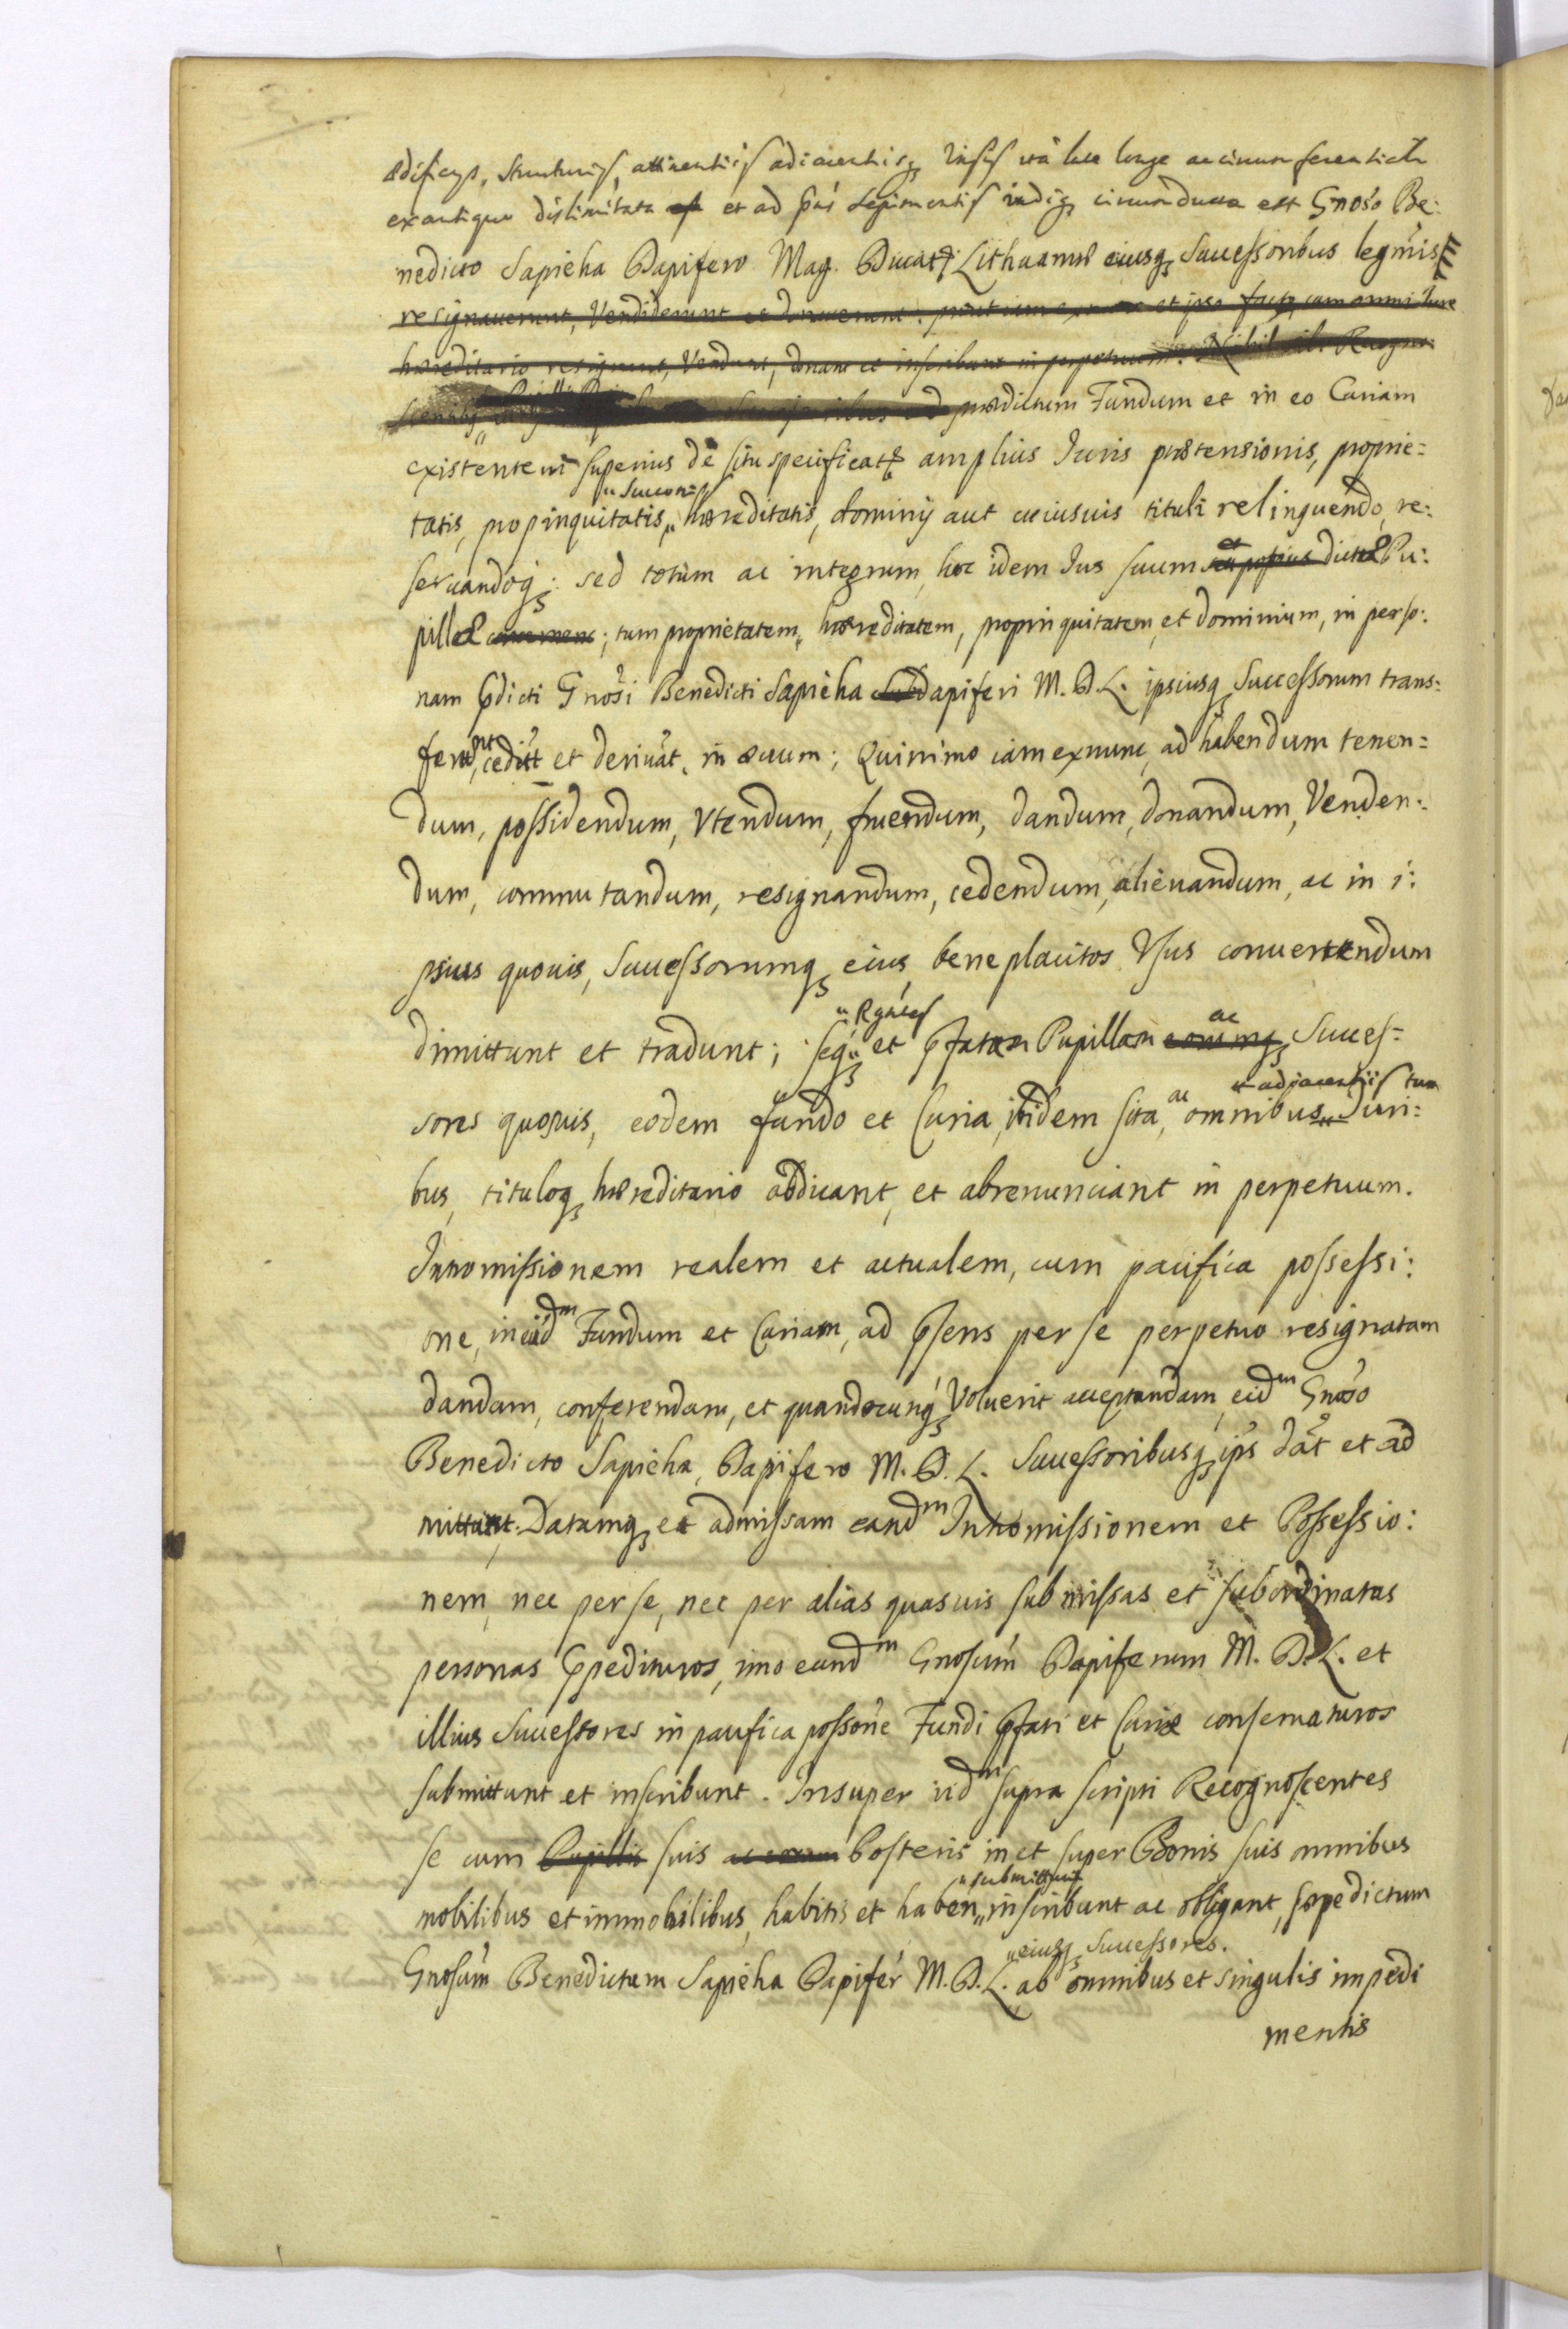 ædificys, structuris, attinentiis adiacentiisq vsis ita late longe ac circumferentialr
ex antiquo dislimitata est et ad pñs sepimentis vndiq circumducta est Gnoso Be:
nedicto Sapieha Dapifero Mag. Ducatq Lithuaniæ eiusq Successoribus legm̃is
resignauerunt, Vendiderunt et donauerunt: prout iam ex nunc et ipso facto, cum omni Iure
hæreditario resignant, Vendunt, donant et inscribunt in perpetuum. Nihil sibi Recogno:
scentibq prædictum Fundum et in eo Curiam
existentem superius de situ specificatq amplius Iuris prætensionis, proprie=
tatis, propinquitatis, "Succonis hæreditatis, dominij aut cuiusuis tituli relinquendo, re:
seruandoq: sed totum ac integrum hoc idem Ius suum et dictæ Pu:
pillæ ; tum proprietatem, hæreditatem, propinquitatem et dominium, in perso:
nam pdicti Gnosi Benedicti Sapieha Subdapiferi M. D. L. ipsiusq Successorum trans:
ferunt, cedut et deriuat, in æuum; Quinimo iam exnunc, ad habendum tenen=
dum, possidendum, Vtendum, fruendum, dandum, donandum, Venden:
dum, commutandum, resignandum, cedendum, alienandum, ac in i:
psius quouis, Successorumq eius beneplacitos Vsus conuertendum
dimittunt et tradunt; seq "Rgñtes et pfatam Pupillam eorumq ac Succes=
sores quosuis, eodem fundo et Curia, ibidem sita, ac omnibus "adjacentiis tum Iuri=
bus, tituloq hæreditario abdicant, et abrenunciant in perpetuum.
Intromissionem realem et actualem, cum pacifica possessi:
one, in eud^m Fundum et Curiam, ad psens per se perpetuo resignatam
dandam, conferendam, et quandocunq Voluerit acceptandam, eid^m Gnoso
Benedicto Sapieha, Dapifero M. D. L. Successoribusq ips dat et ad
mittunt. Datamq et admissam eand^m Intromissionem et Possessio:
nem, nec per se, nec per alias quasuis submissas et subordinatas
personas ppedituros, imo eund^m Gnosum Dapiferum M. D. L. et
illius Successores in pacifica possone Fundi pfati et Curiæ conseruaturos
submittunt et inscribunt. Insuper iid^m supra scripti Recognoscentes
se cum Pupillis suis ac eorum Posteris in et super Bonis suis omnibus
mobilibus et immobilibus, habitis et haben, "submittunt inscribunt ac obligant, sæpedictum
Gnosum Benedictum Sapieha Dapifer M. D. L. "eiusq Successores. ab omnibus et singulis impedi
mentis